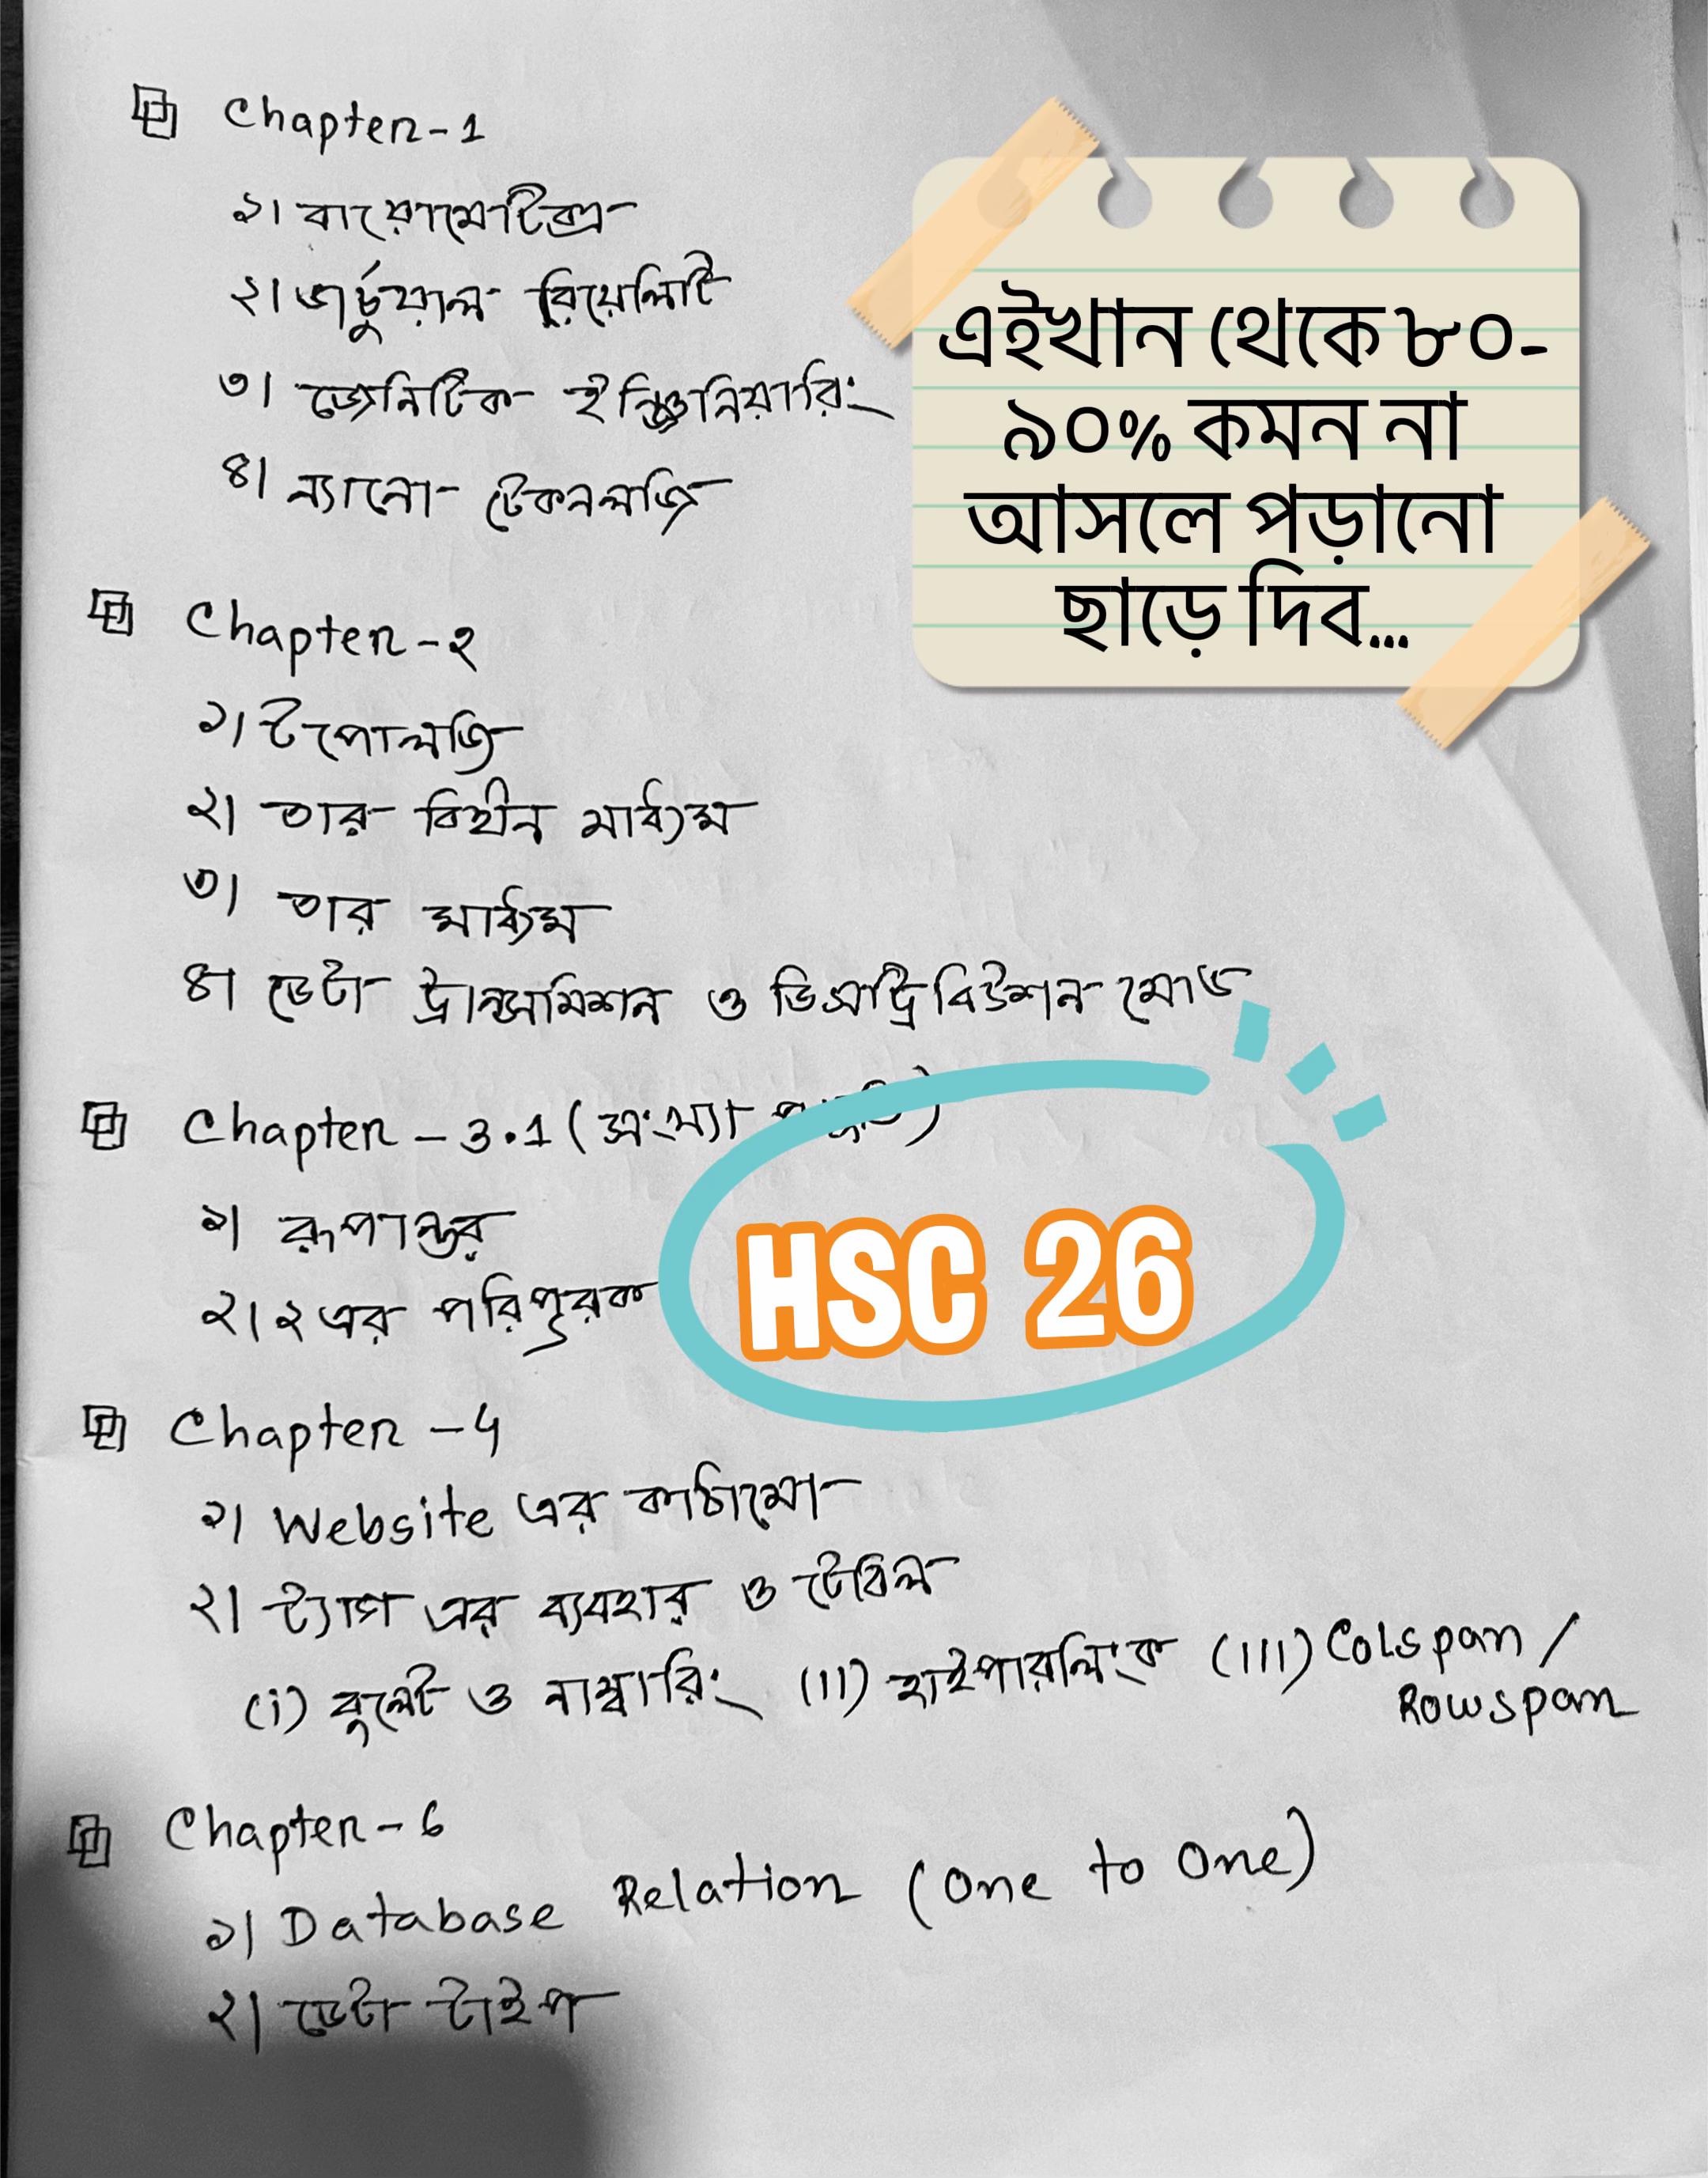 Chapter-1
১। বায়োমেট্রিক্স
২। ভার্চুয়াল রিয়েলিটি
৩। জেনিটিক ইন্জিনিয়ারিং
৪। ন্যানো টেকনলজি
এইখান থেকে ৮০-
৯০% কমন না
আসলে পড়ানো
ছাড়ে দিব...
Chapter-২
১। টপোলজি
২। তার বিহীন মাধ্যম
৩। তার মাধ্যম
৪। ডেটা ট্রান্সমিশন ও ডিসট্রিবিউশন মোড
Chapter-3.1 (সংখ্যা পদ্ধতি)
১। রূপান্তর
২। ২ এর পরিপূরক
HSC 26
Chapter-4
১। Website এর কাঠামো
২। ট্যাগ এর ব্যবহার ও টেবিল
(i) বুলেট ও নাম্বারিং (II) হাইপারলিংক (III) Colspan /
Rowspan
Chapter-6
১। Database Relation (One to One)
২। ডেটা টাইপ